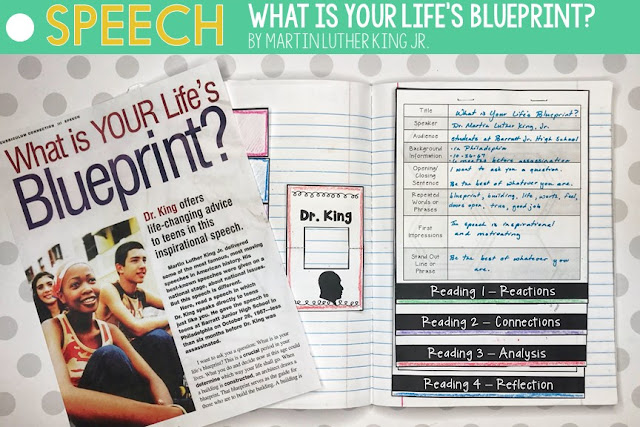 SPEECH
WHAT IS YOUR LIFE'S BLUEPRINT?
BY MARTIN LUTHER KING JR.
CURRICULUM CONNECTION /// SPEECH
What is YOUR Life's
Blueprint?
Dr. King offers
life-changing advice
to teens in this
inspirational speech.
Martin Luther King Jr. delivered
some of the most famous, most moving
speeches in American history. His
best-known speeches were given on a
national stage, about national issues.
But this speech is different.
Here, read a speech in which
Dr. King speaks directly to teens
just like you. He gave the speech to
teens at Barratt Junior High School in
Philadelphia on October 26, 1967—less
than six months before Dr. King was
assassinated.
I want to ask you a question: What is in your
life's blueprint? This is a crucial period in your
lives. What you do and decide now at this age could
determine which way your life shall go. When
a building is constructed, an architect draws a
blueprint. This blueprint serves as the guide for
those who are to build the building. A building is
Dr. King
Title What is Your Life's Blueprint?
Speaker Dr. Martin Luther King, Jr.
Audience students at Barratt Jr. High School
Background Information
· in Philadelphia
· 10-26-67
· 6 months before assassination
Opening/ Closing Sentence
I want to ask you a question.
Be the best of whatever you are.
Repeated Words or Phrases
blueprint, building, life, worth, feel,
doors open, good job
First Impressions
speech is inspirational
and motivating
Stand Out Line or Phrase
Be the best of whatever you
are.
Reading 1 – Reactions
Reading 2 – Connections
Reading 3 – Analysis
Reading 4 – Reflection